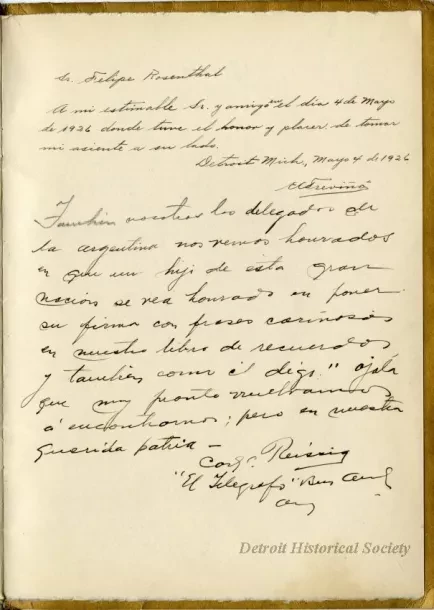 Sr. Felipe Rosenthal
A mi estimable Sr. y amigo en el dia 4 de Mayo
de 1926 donde tuve el honor y placer de tomar
mi asiente a su lado.
Detroit Mich, Mayo 4 de 1926
Treviño
nosotros los delegados de
la argentina nos vemos honrados
en que un hijo de esta gran
nacion se vea honrado en poner
su firma con frases cariñosas
en nuestro libro de recuerdos
y tambien como él digo." ojalá
que muy pronto vuelvamos
á encontrarnos; pero en nuestra
querida patria —
Reissig
"El Telegrafo"
Detroit Historical Society